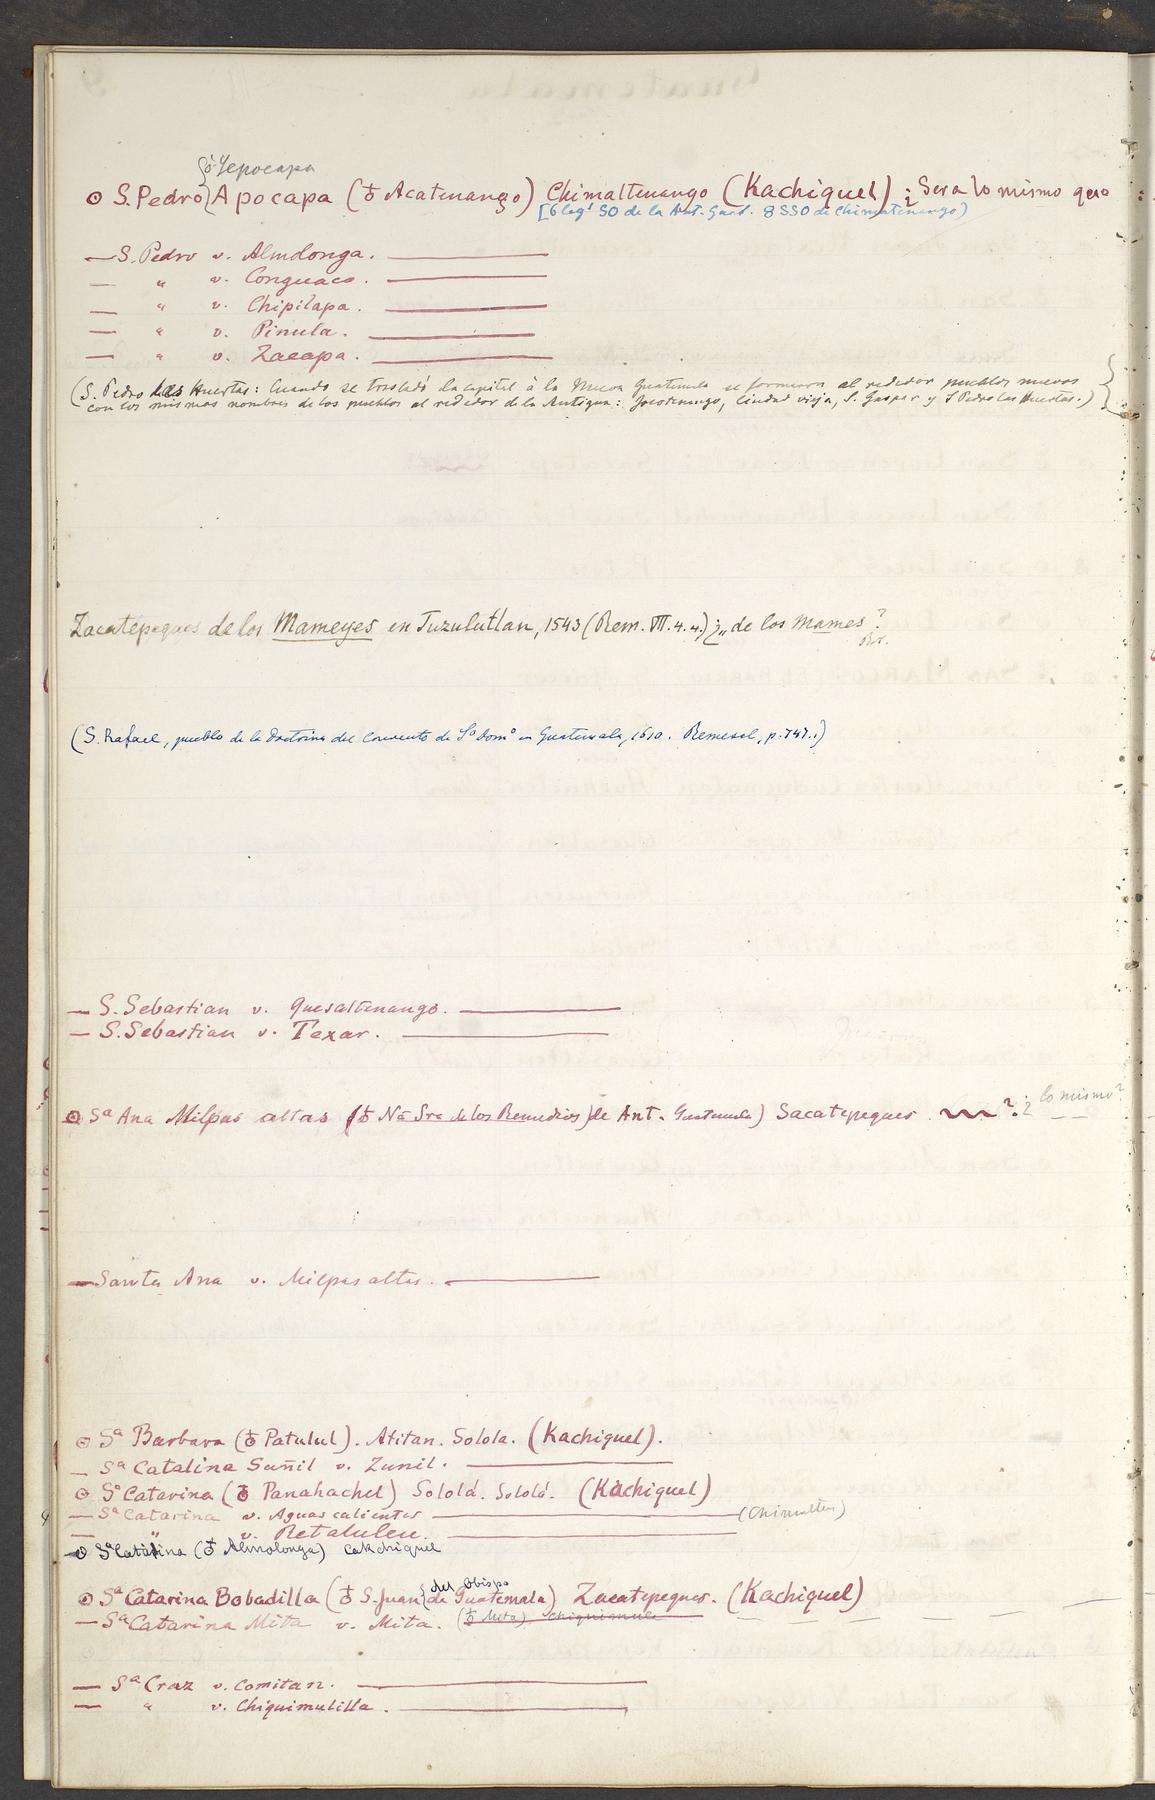 ó Yepocapa
⊙ S. Pedro Apocapa (♁ Acatenango) Chimaltenango (Kachiquel) ¿Sera lo mismo que
[6 leg.s SO de la Ant. Guat. 8 SSO de Chimaltenango)
— S. Pedro v. Almolonga. —
— " v. Conguaco. —
— " v. Chipilapa. —
— " v. Pinula. —
— " v. Zacapa. —
(S. Pedro las Huertas: Cuando se trasladó la capital á la Nueva Guatemala se formaron al rededor pueblos nuevos
con los mismos nombres de los pueblos al rededor de la Antigua: Jocotenango, Ciudad vieja, S. Gaspar y S Pedro las Huertas.)
Zacatepeques de los Mameyes en Tuzulutlan, 1543 (Rem. VII. 4. 4.) ¿„de los Mames?
Br.
(S. Rafael, pueblo de la Doctrina del Convento de Sto Domo en Guatemala, 1610. Remesal, p. 747.)
— S. Sebastian v. Quesaltenango. —
— S. Sebastian v. Texar. —
⊙ Sa Ana Milpas altas (♁ Na Sra de los Remedios) de Ant. Guatemala) Sacatepeques ? ¿lo mismo?
— Santa Ana v. Milpas altas. —
⊙ Sa Barbara (♁ Patulul). Atitan. Solola. (Kachiquel).
— Sa Catalina Suñil v. Zunil. —
⊙ Sa Catarina (♁ Panahachel) Sololá. Sololá. (Kachiquel)
— Sa Catarina v. Aguas calientes — (Chimalten)
— " v. Retaluleu. —
⊙ Sa Catarina (♁ Almolonga) Cakchiquel
del Obispo
⊙ Sa Catarina Bobadilla (♁ S. Juan de Guatemala) Zacatepeques. (Kachiquel)
— Sa Catarina Mita v. Mita. (♁ Mita) Chiquimula
— Sa Cruz v. Comitan. —
— " v. Chiquimulilla. —